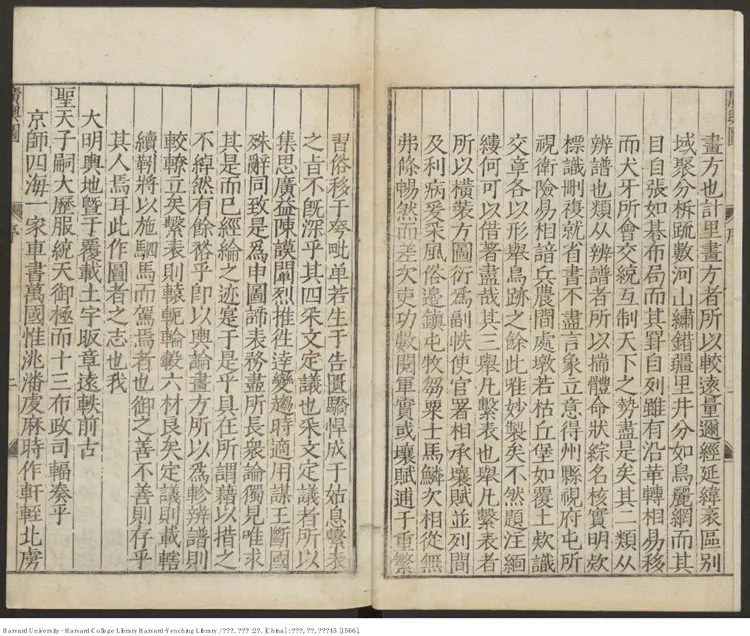 廣輿圖 序
畫方也計里畫方者所以較遠量邇經延緯袤區别
域聚分柝疏數河山繡錯疆里井分如鳥麗網而其
目自張如棊布局而其罫自列雖有沿革轉相易移
而犬牙所會交統互制天下之勢盡是矣其二類从
辨譜也類从辨譜者所以揣體命狀綜名核實明款
標識刪複就省書不盡言象立意得州縣視府屯所
視衛險易相諳丘農間處墩若枯丘堡如覆土欵識
交章各以形舉鳥跡之餘此雅妙製矣不然題注緬
縷何可以借著盡哉其三舉凡繫表也舉凡繫表者
所以橫裝方圖衍為副帙使官署相承壤賦並列間
及利病爰采風俗邊鎮屯牧芻粟士馬鱗次相從無
弗條暢然而差次吏功數閱軍實或壤賦逋于重繁
習俗移于旁毗单若生于告置驕悍成于姑息繫表
之旨不既深乎其四采文定議也采文定議者所以
集思廣益陳謨闡烈推往逹變趨時適用謀王斷國
殊辭同致是爲申圖諦表務盡所長衆論獨見唯求
其是而已經綸之迹寔于是乎具在所謂藉以措之
不綽然有餘裕乎卽以輿論畫方所以爲軫辨譜則
較轑立矣繫表則轅軛輪轂六材良矣定議則載轄
續靷將以施駟馬而駕焉者也御之善不善則存乎
其人焉耳此作圖者之志也我
大明輿地暨于覆載土宇昄章遠軼前古
聖天子嗣大歷服統天御極而十三布政司輻奏乎
京師四海一家車書萬國惟洮潘虔麻時作軒輊北虏
廣輿圖 序 二